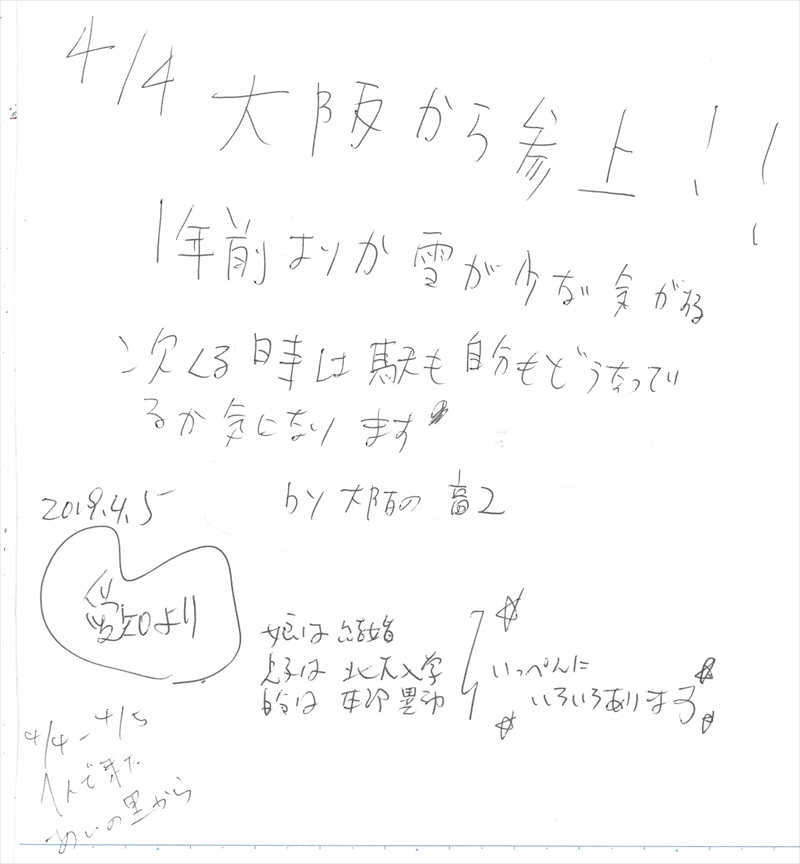 4/4 大阪から参上!!
1年前よりか雪が少ない気がする
次くる時は駅も自分もどうなってい
るか気になります
by 大阪の高2
2019.4.5
愛知より
娘は結婚
息子は北大入学
自分は 異動
いっぺんに
いろいろあります
4/4-4/5
1人で来た
の里から